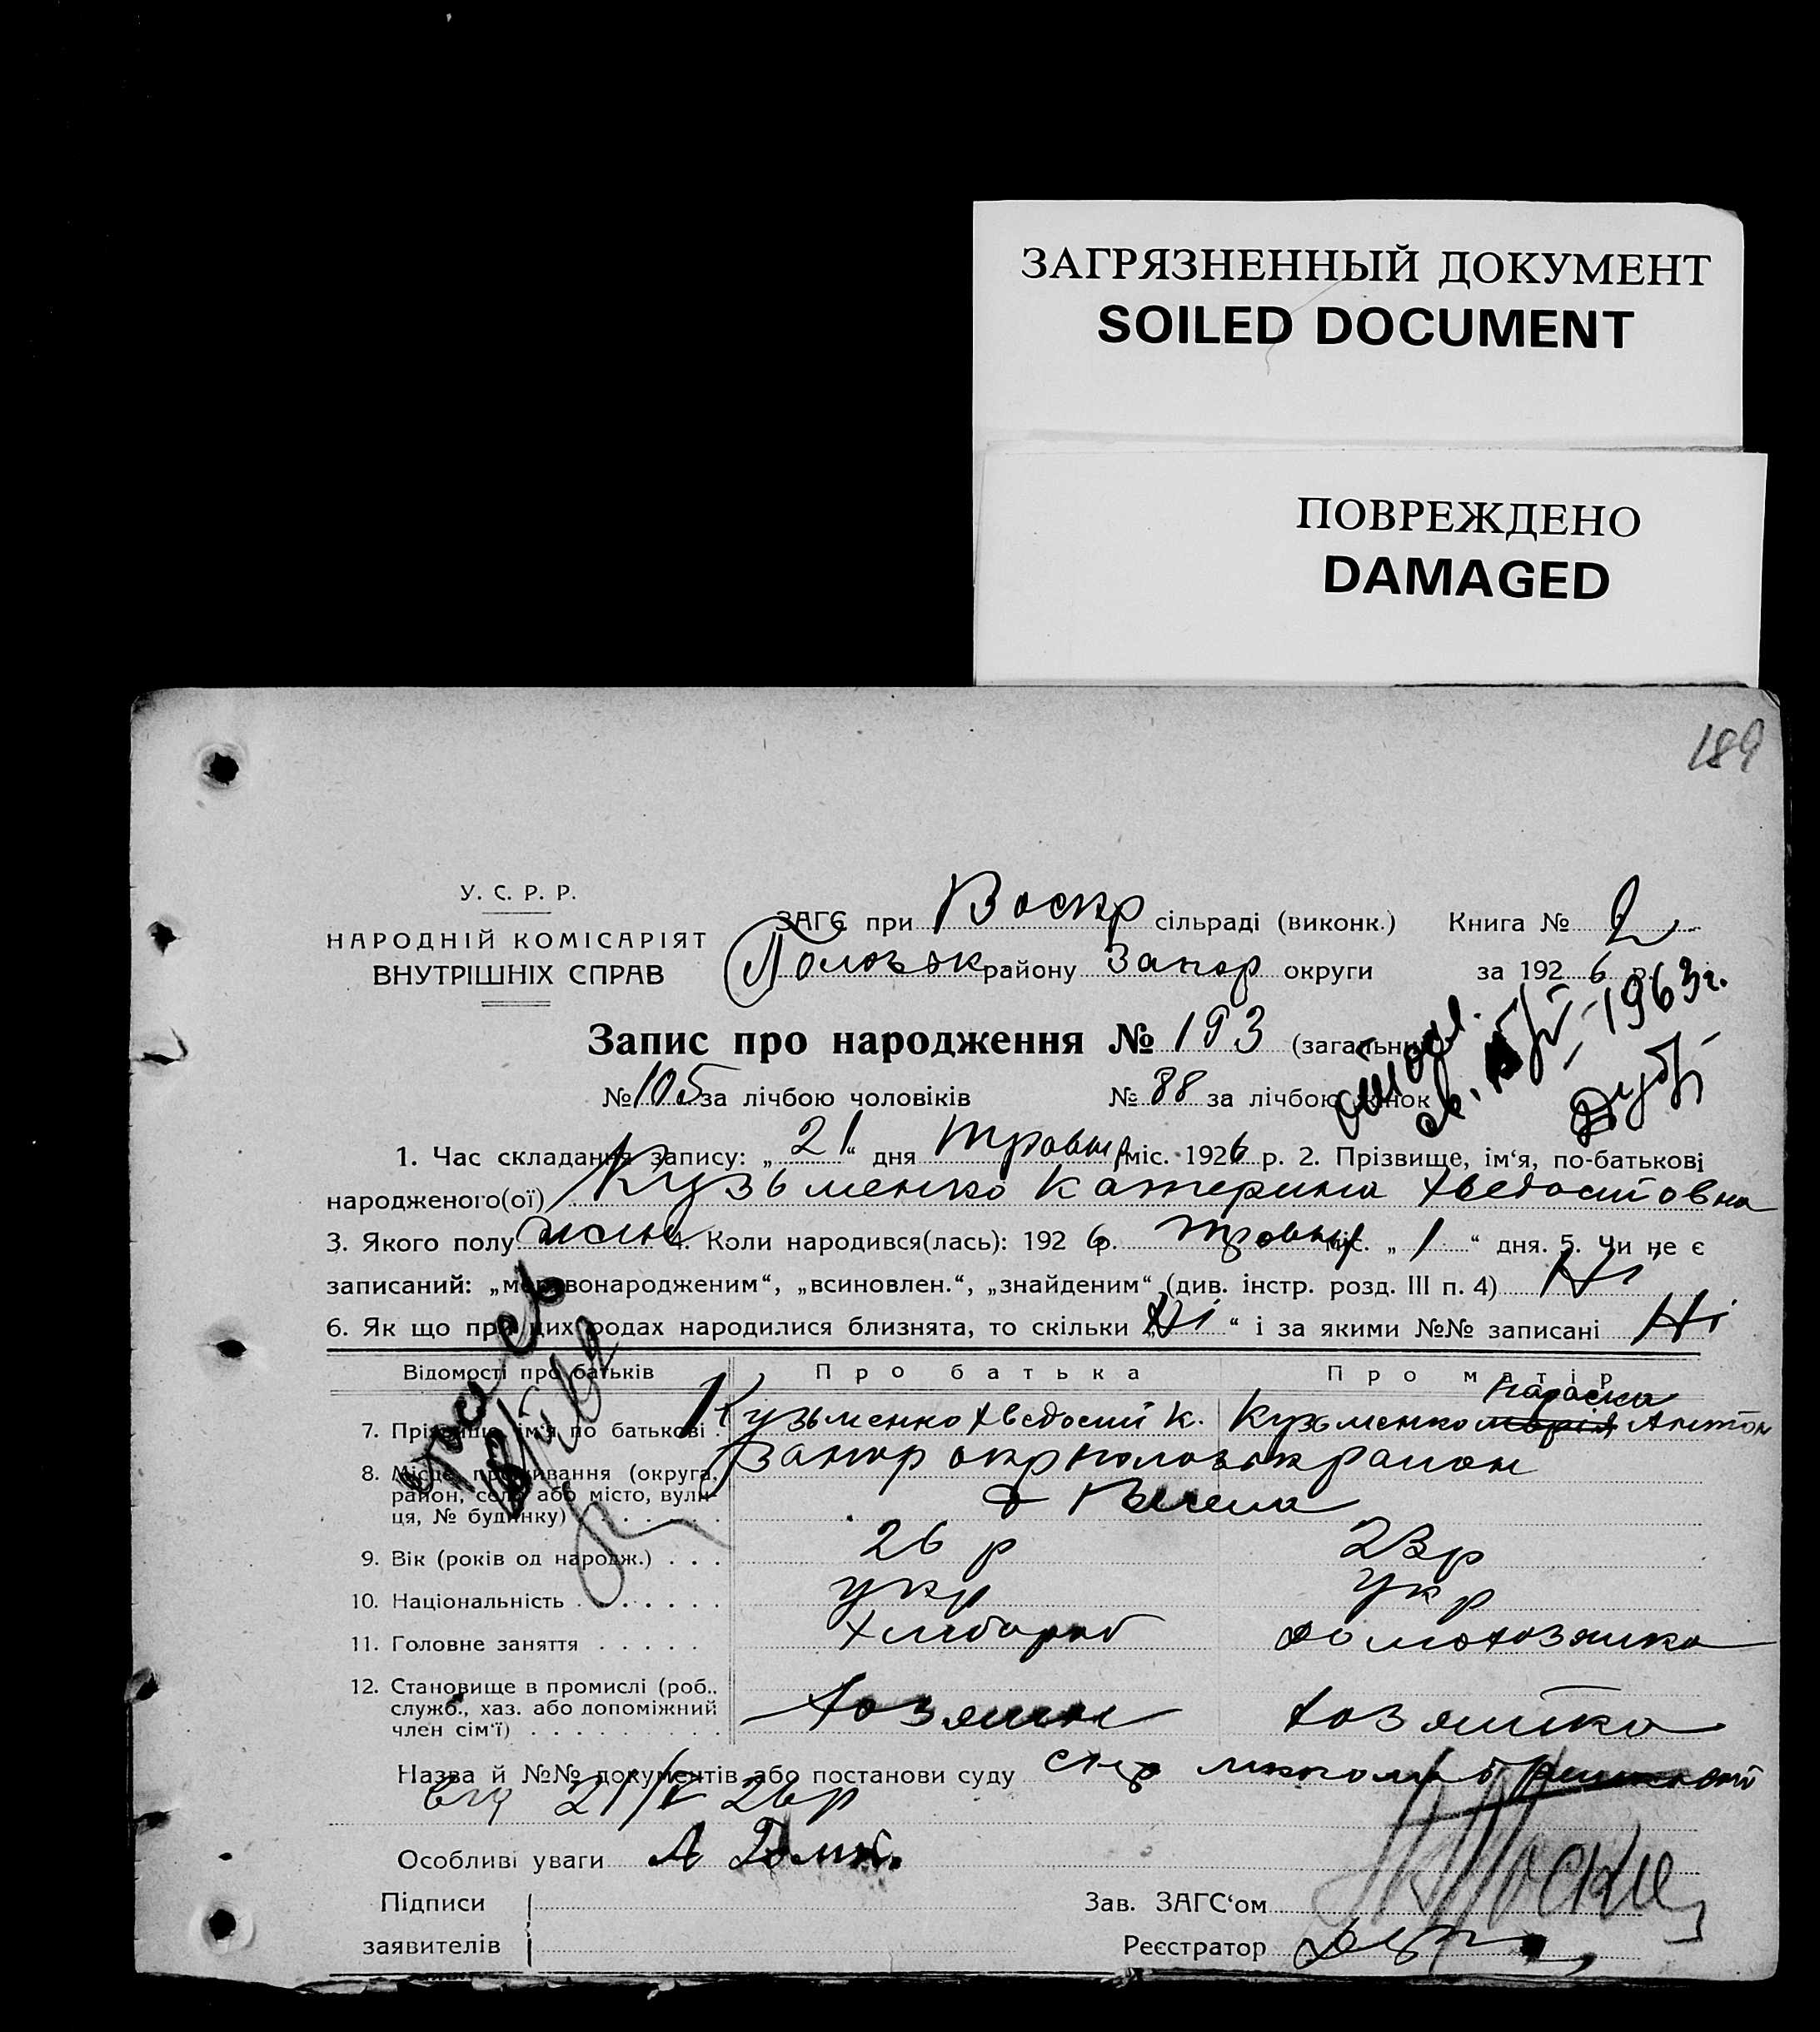 ЗАГРЯЗНЕННЫЙ ДОКУМЕНТ
SOILED DOCUMENT
ПОВРЕЖДЕНО
DAMAGED
189
У. С. Р. Р.
НАРОДНІЙ КОМІСАРІЯТ
ВНУТРІШНІХ СПРАВ
ЗАГС при Воскр сільраді (виконк.) Книга № 2
району Запор округи за 1926 р.
1963 г.
Запис про народження № 193 (загальний)
№ 105 за лічбою чоловіків № 88 за лічбою жінок
1. Час складання запису: „21“ дня травня міс. 1926 р. 2. Прізвище, ім‘я, по-батькові
народженого(ої) Кузьменко Катерина Хведоситовна
3. Якого полу жін 4. Коли народився(лась): 1926 р. травня міс. „1“ дня. 5. Чи не є
записаний: „мертвонародженим“, „всиновлен.“, „знайденим“ (див. інстр. розд. III п. 4) Ні
6. Як що при цих родах народилися близнята, то скільки „Ні“ і за якими №№ записані Ні
Відомості про батьків Про батька Про матір
Параска
7. Прізвище, ім‘я по батькові Кузьменко Хведосий К. Кузьменко Марія Антон
8. Місце проживання (округа, Запор окр район
район, село або місто, вули-
ця, № будинку)
9. Вік (років од народж.) 26 р 23 р
10. Національність укр укр
11. Головне заняття Хлибороб домохозяика
12. Становище в промислі (роб.. 
служб., хаз. або допоміжний Хозяин Хозяйка
член сім‘ї)
Назва й №№ документів або постанови суду
21/V 26 р
Особливі уваги
Підписи
заявителів
Зав. ЗАГС‘ом
Реєстратор